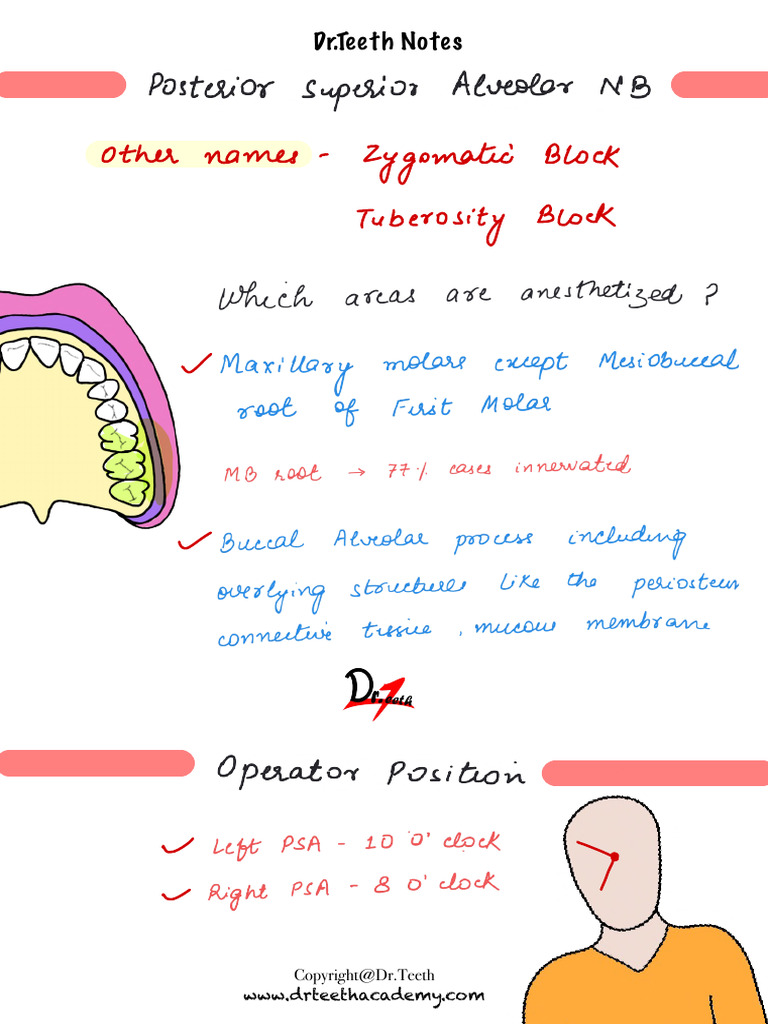 Dr.Teeth Notes
Posterior Superior Alveolar NB
Other names - Zygomatic Block
Tuberosity Block
Which areas are anesthetized ?
Maxillary molars except Mesiobuccal
root of First Molar
MB root → 77% cases innervated
Buccal Alveolar process including
overlying structures like the periosteum
connective tissue, mucous membrane
Dr.Teeth
Operator Position
Left PSA - 10 O'clock
Right PSA - 8 O'clock
Copyright@Dr.Teeth
www.drteethacademy.com